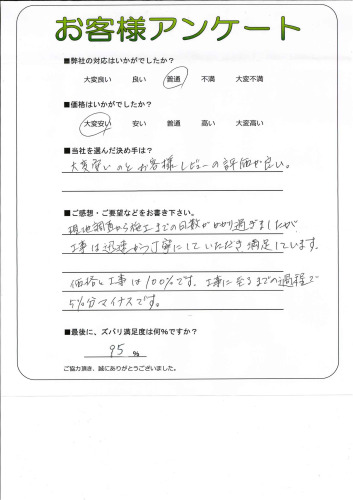 お客様アンケート
■弊社の対応はいかがでしたか?
大変良い 良い 普通 不満 大変不満
■価格はいかがでしたか?
大変安い 安い 普通 高い 大変高い
■当社を選んだ決め手は?
大変安いのとお客様レビューの評価が良い。
■ご感想・ご要望などをお書き下さい。
現地調査から施工までの日数がかかり過ぎましたが
工事は迅速かつ丁寧にしていただき満足しています。
価格と工事は100%です。工事に至るまでの過程で
5%分マイナスです。
■最後に、ズバリ満足度は何%ですか?
95 %
ご協力頂き、誠にありがとうございました。